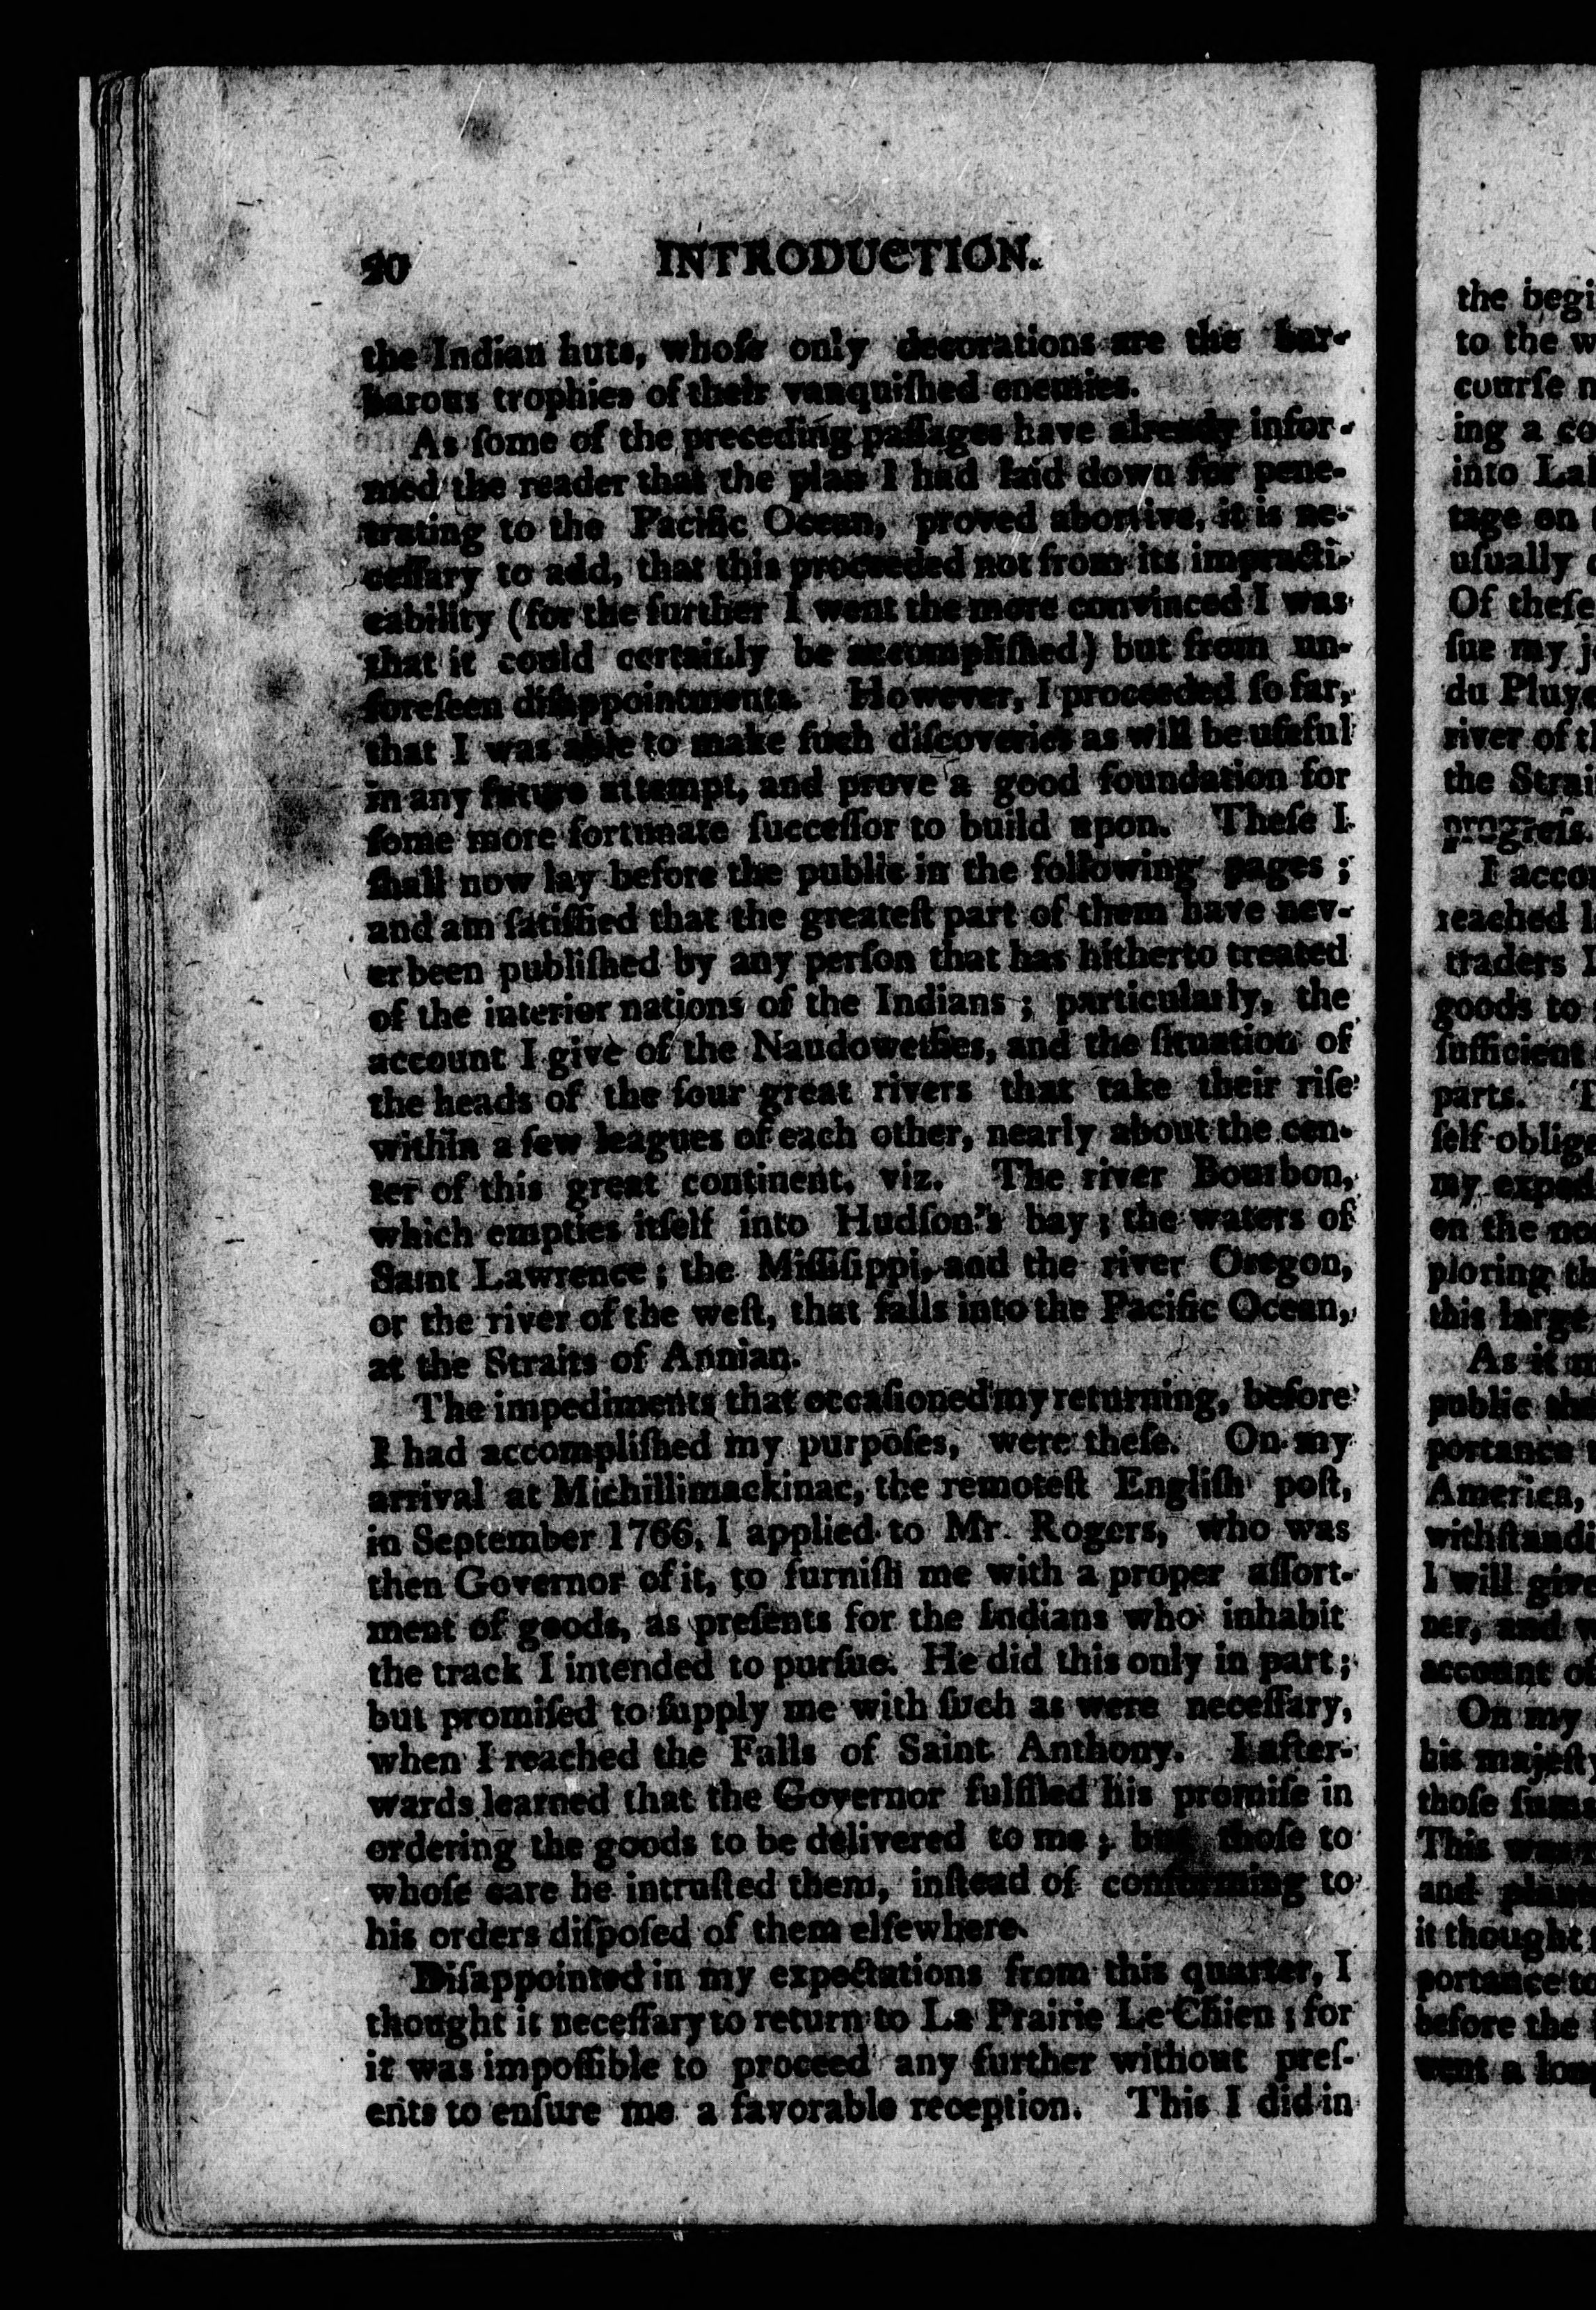 20 INTRODUCTION.
the Indian huts, whoſe only decorations are the bar-
barous trophies of their vanquiſhed enemies.
As ſome of the preceding paſſages have already infor-
med the reader that the plan I had laid down for pene-
trating to the Pacific Ocean, proved abortive, it is ne-
ceſſary to add, that this proceeded not from its impracti-
cability (for the further I went the more convinced I was
that it could certainly be accompliſhed) but from un-
foreſeen diſappointments. However, I proceeded ſo far,
that I was able to make ſuch diſcoveries as will be uſeful
in any future attempt, and prove a good foundation for
ſome more fortunate ſucceſſor to build upon. Theſe I
ſhall now lay before the public in the following pages ;
and am ſatiſfied that the greateſt part of them have nev-
er been publiſhed by any perſon that has hitherto treated
of the interior nations of the Indians ; particularly, the
account I give of the Naudoweſſies, and the ſituation of
the heads of the four great rivers that take their riſe
within a few leagues of each other, nearly about the cen-
ter of this great continent, viz. The river Bourbon,
which empties itſelf into Hudſon's bay ; the waters of
Saint Lawrence ; the Miſſiſippi, and the river Oregon,
or the river of the weſt, that falls into the Pacific Ocean,
at the Straits of Annian.
The impediments that occaſioned my returning, before
I had accompliſhed my purpoſes, were theſe. On my
arrival at Michillimackinac, the remoteſt Engliſh poſt,
in September 1766, I applied to Mr. Rogers, who was
then Governor of it, to furniſh me with a proper aſſort-
ment of goods, as preſents for the Indians who inhabit
the track I intended to purſue. He did this only in part ;
but promiſed to ſupply me with ſuch as were neceſſary,
when I reached the Falls of Saint Anthony. I after-
wards learned that the Governor fulfilled his promiſe in
ordering the goods to be delivered to me ; but thoſe to
whoſe care he intruſted them, inſtead of conforming to
his orders diſpoſed of them elſewhere.
Diſappointed in my expectations from this quarter, I
thought it neceſſary to return to La Prairie Le Chien ; for
it was impoſſible to proceed any further without preſ-
ents to enſure me a favorable reception. This I did in
the begi
to the w
courſe
ing a co
into La
tage on
uſually
Of theſe
ſue my j
du Pluye
river of t
the Strai
progreſs.
I acco
reached
traders
goods to
ſufficient
parts.
ſelf oblig
my exped
on the no
ploring th
this large
As it m
public th
portance
America,
withſtand
I will giv
ner, and w
account of
On my
his majeſty
thoſe ſums
This was
and plan
it thought
portance to
before the
went a lon